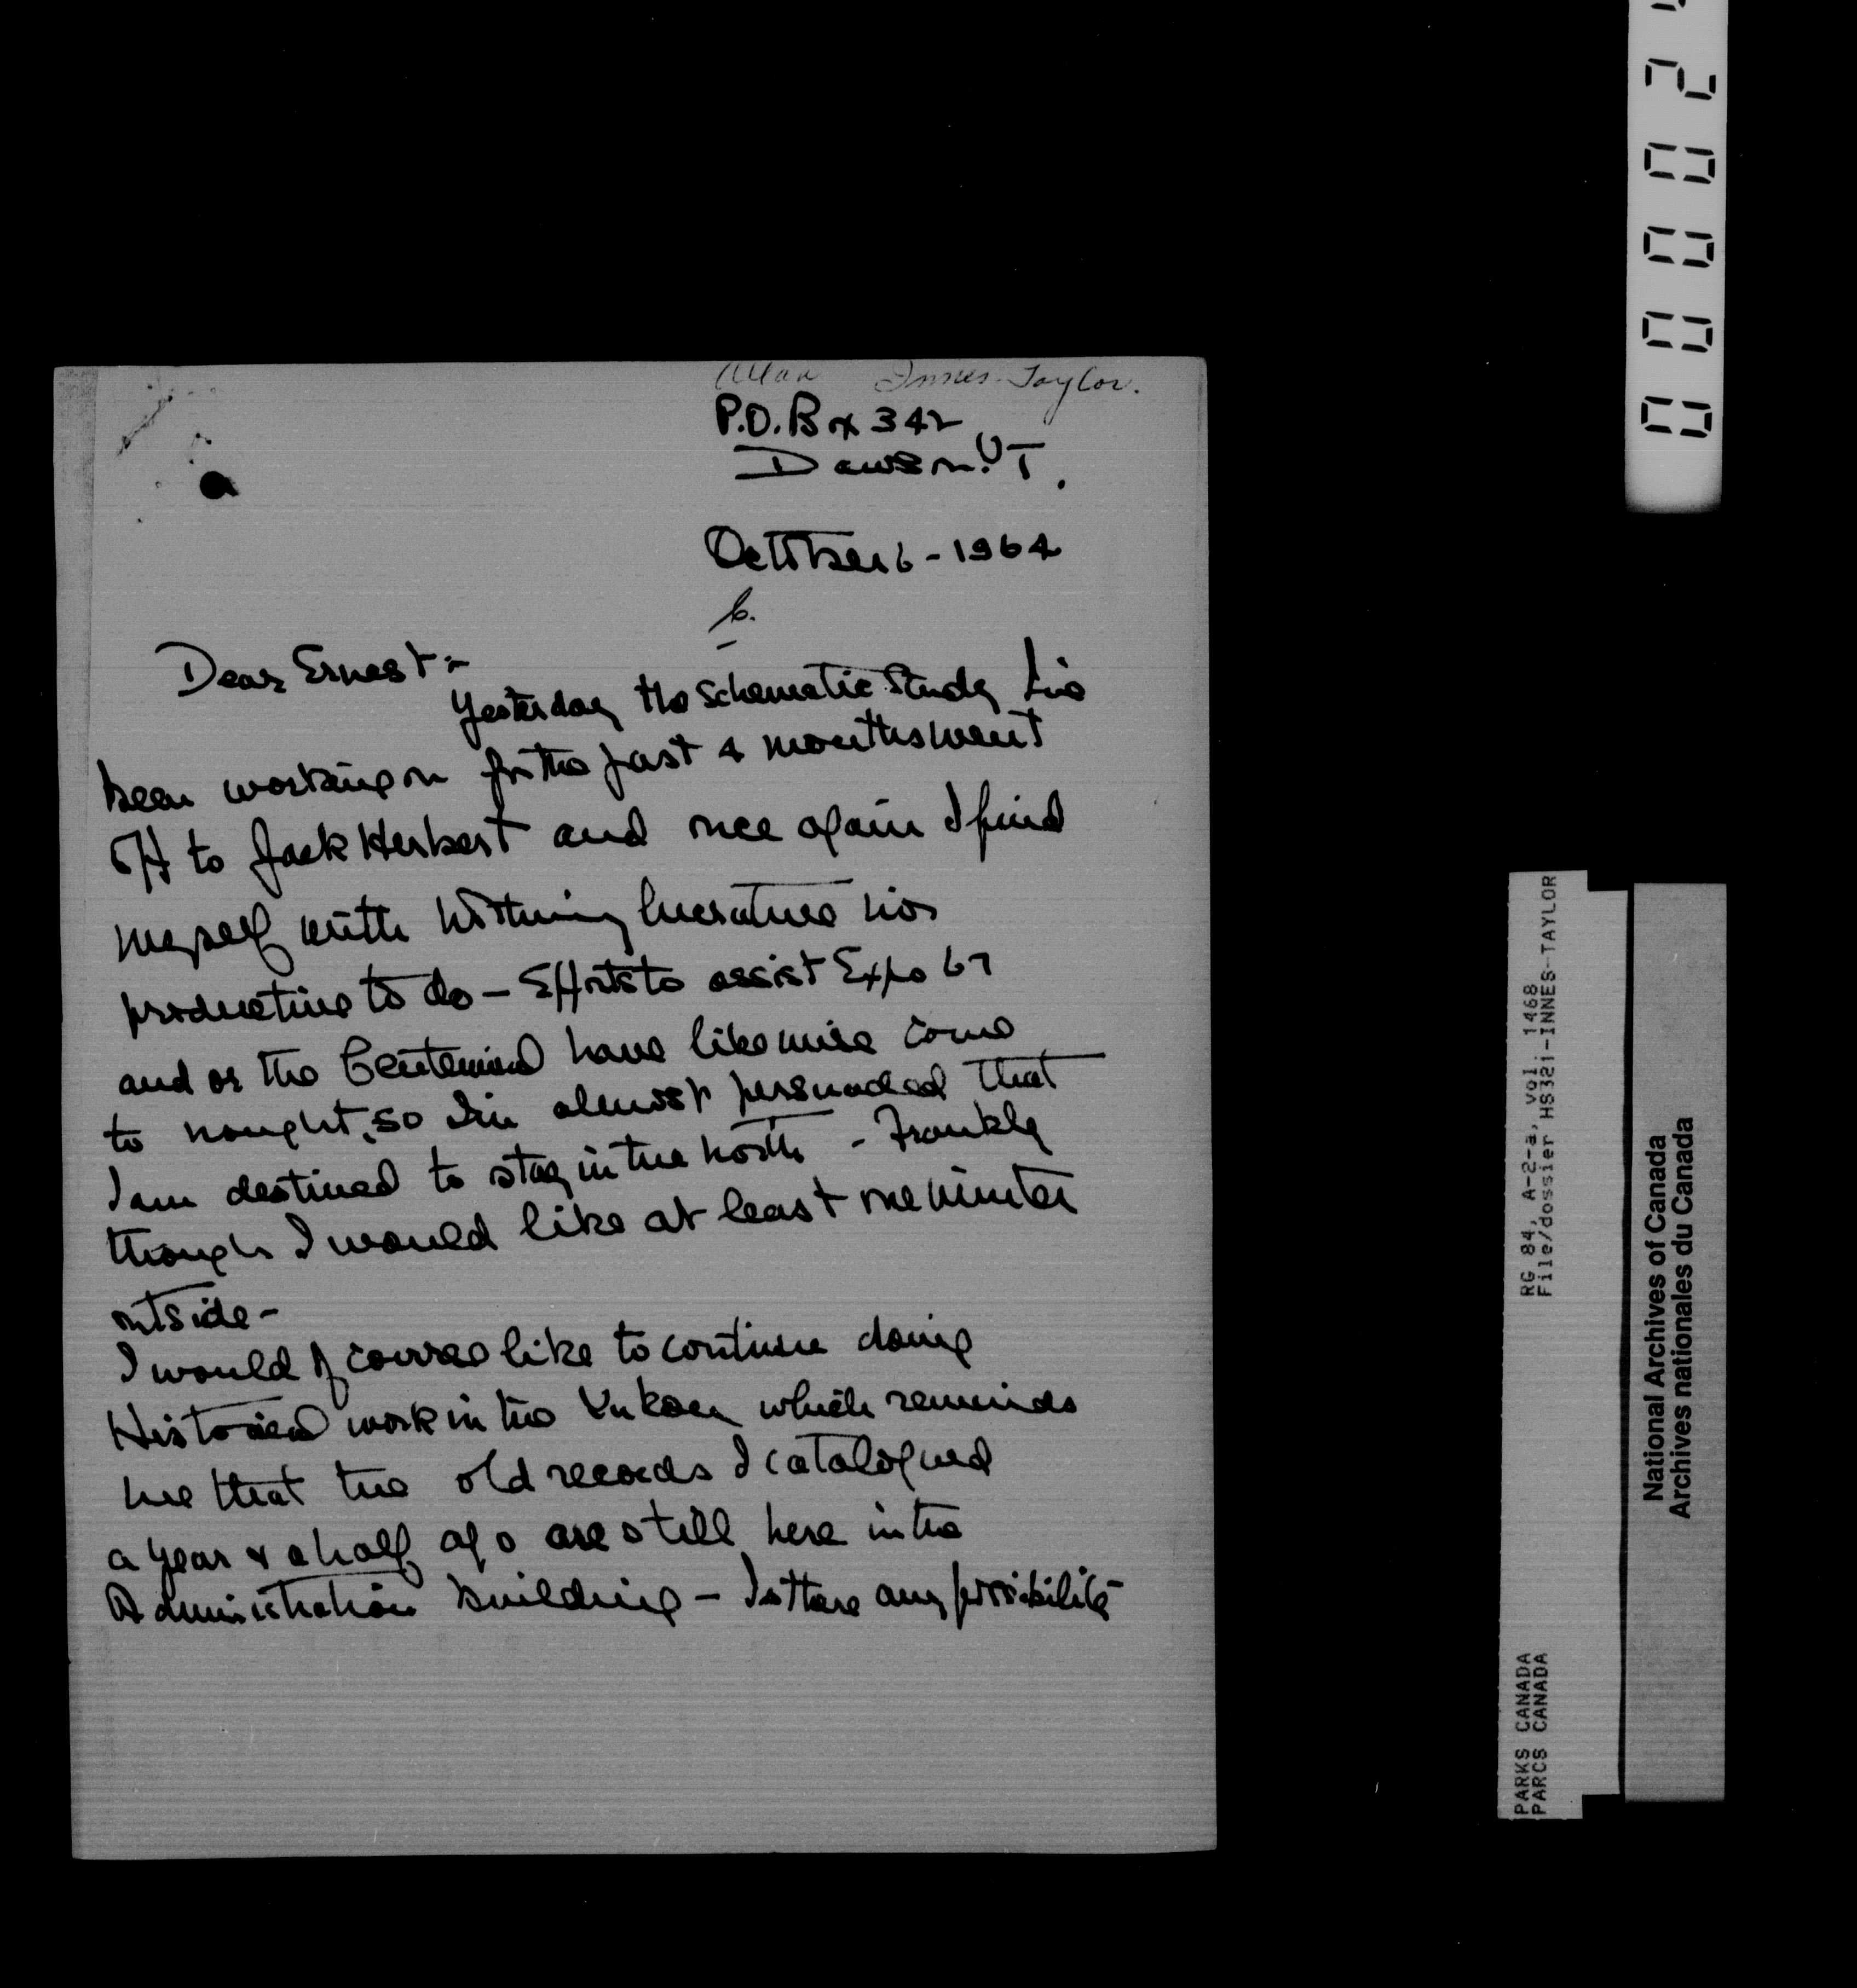 Allan Innes-Taylor.
P.O. Box 342
Dawson. Y T.
October 6 - 1964
6.
Dear Ernest :-
Yesterday the Schematic Study I've
been working on for the past 4 months went
off to Jack Herbert and once again I find
myself with nothing lucrative nor
productive to do - Efforts to assist Expo 67
and or the Centennial have likewise come
to nought, so I'm almost persuaded that
I am destined to stay in the north - Frankly
though I would like at least one winter
outside -
I would of course like to continue doing
Historical work in the Yukon which reminds
me that the old records I catalogued
a year & a half ago are still here in the
Administration building - Is there any possibility
0000
2
RG 84, A-2-a, vol. 1468
File/dossier HS321-INNES-TAYLOR
PARKS CANADA
PARCS CANADA
National Archives of Canada
Archives nationales du Canada